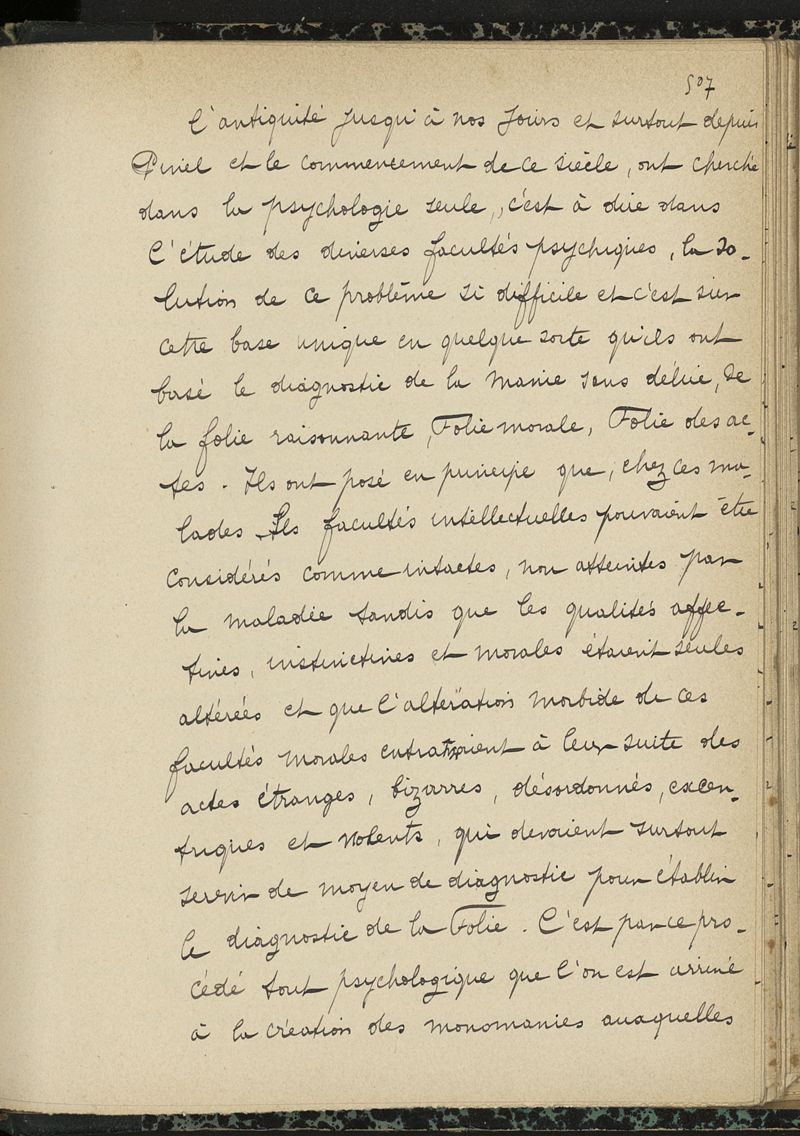 507
l'antiquité jusqu'à nos jours et surtout depuis
Pinel et le commencement de ce siècle, ont cherché
dans la psychologie seule, c'est à dire dans
l'étude des diverses facultés psychiques, la so-
lution de ce problème si difficile et c'est sur
cette base unique en quelque sorte qu'ils ont
basé le diagnostic de la manie sans délire, de
la folie raisonnante, Folie morale, Folie des ac-
tes. Ils ont posé en principe que, chez ces ma-
lades les facultés intellectuelles pouvaient être
considérés comme intactes, non atteintes par
la maladie tandis que les qualités affec-
tives, instinctives et morales étaient seules
altérées et que l'altération morbide de ces
facultés morales entraînaient à leur suite des
actes étranges, bizarres, désordonnés, excen-
triques et violents, qui devaient surtout
servir de moyen de diagnostic pour établir
le diagnostic de la Folie. C'est par ce pro-
cédé tout psychologique que l'on est arrivé
à la création des monomanies auxquelles